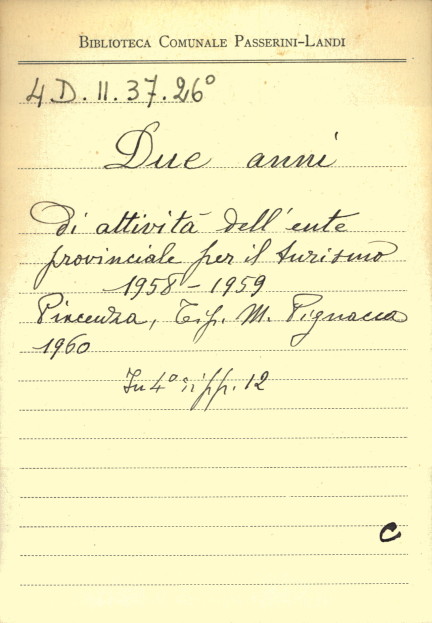 BIBLIOTECA COMUNALE PASSERINI-LANDI
4 D. II. 37. 26°
Due anni
di attività dell'ente
provinciale per il turismo
1958 - 1959
Piacenza, Tip. M. Pignacca
1960
In 4° pp. 12
C